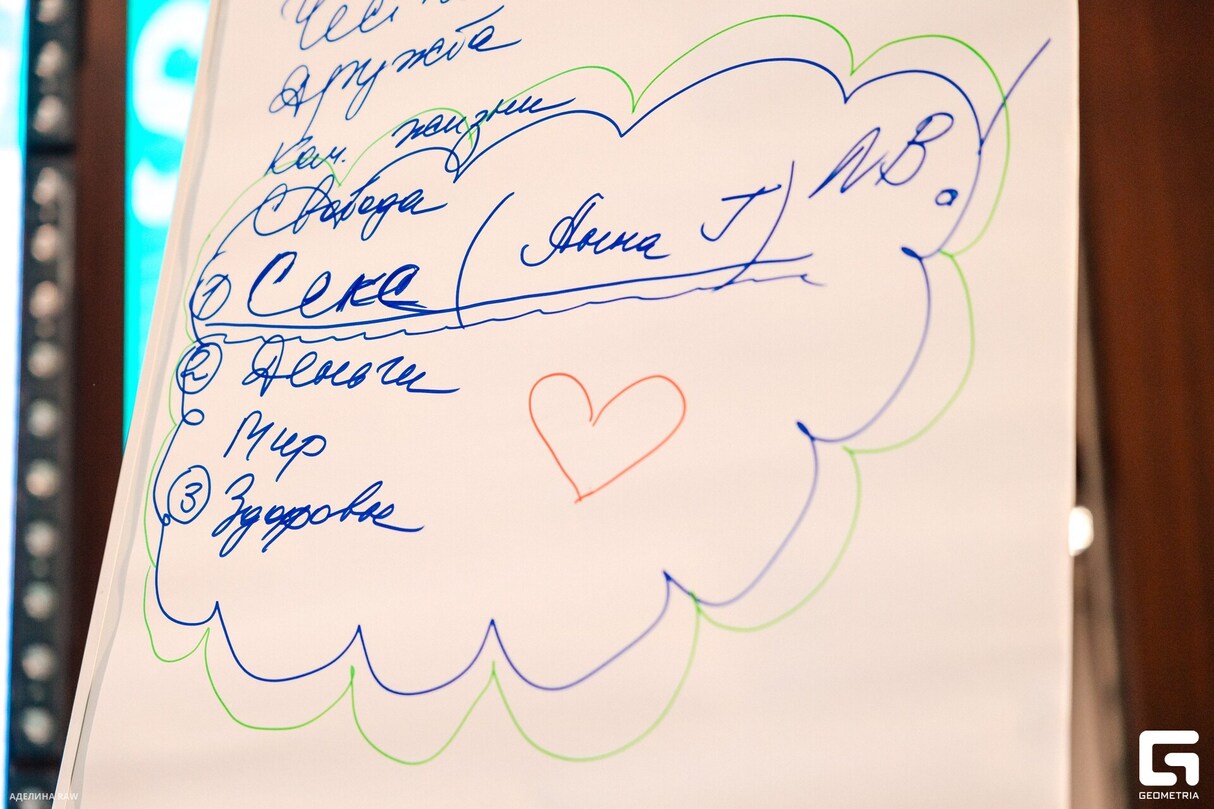 Дружба
Кач. жизни
Свобода
1 Секс (Анна Г)
2 Деньги
Мир
3 Здоровье
АДЕЛИНА RAW
GEOMETRIA